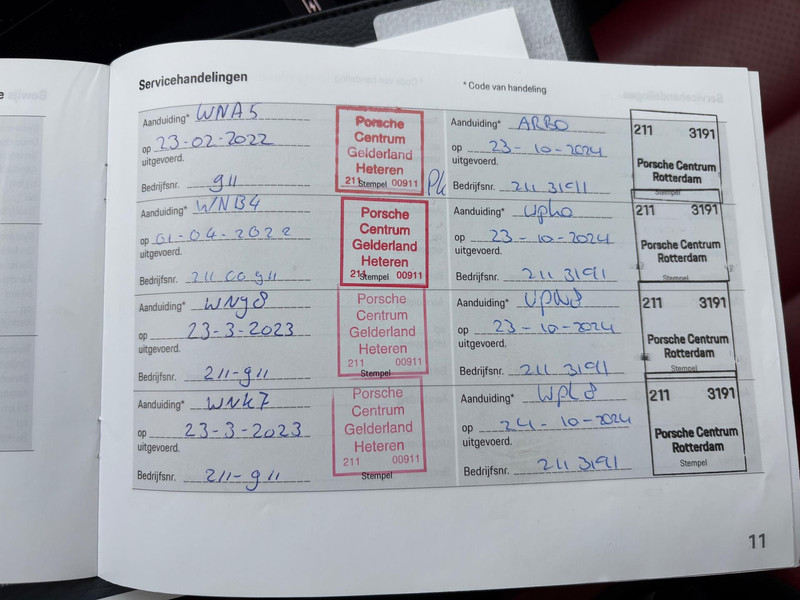 Servicehandelingen
* Code van handeling
Aanduiding* WNA5
op 23-02-2022
uitgevoerd.
Bedrijfsnr. 911
Porsche
Centrum
Gelderland
Heteren
211 Stempel 00911
Aanduiding* WNB4
op 01-04-2022
uitgevoerd.
Bedrijfsnr. 211 00911
Porsche
Centrum
Gelderland
Heteren
211 Stempel 00911
Aanduiding* WNy8
op 23-3-2023
uitgevoerd.
Bedrijfsnr. 211-911
Porsche
Centrum
Gelderland
Heteren
211 00911
Stempel
Aanduiding* WNK7
op 23-3-2023
uitgevoerd.
Bedrijfsnr. 211-911
Porsche
Centrum
Gelderland
Heteren
211 00911
Stempel
Aanduiding* ARBO
op 23-10-2024
uitgevoerd.
Bedrijfsnr. 211 3191
211 3191
Porsche Centrum
Rotterdam
Stempel
Aanduiding*
op 23-10-2024
uitgevoerd.
Bedrijfsnr. 211 3191
211 3191
Porsche Centrum
Rotterdam
Stempel
Aanduiding*
op 23-10-2024
uitgevoerd.
Bedrijfsnr. 211 3191
211 3191
Porsche Centrum
Rotterdam
Stempel
Aanduiding*
op 24-10-2024
uitgevoerd.
Bedrijfsnr. 211 3191
211 3191
Porsche Centrum
Rotterdam
Stempel
11